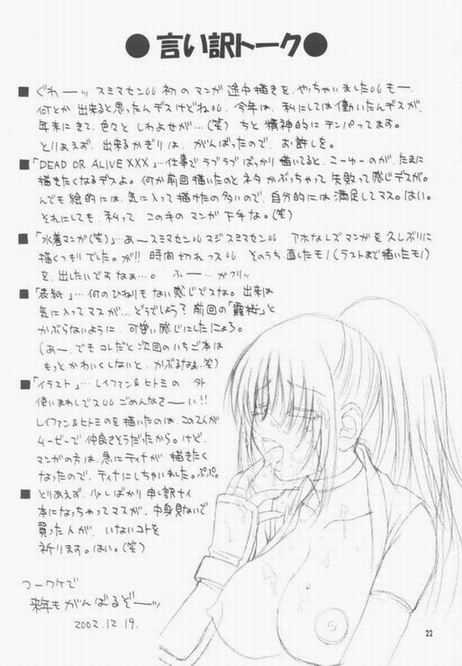 ● 言い訳トーク ●
■ ぐわーッ スミマセン 初のマンガ途中描きを やっちゃいました もー
何とか出来ると思ったんデスけどね 今年は、私にしては働いたんデスが、
年末にきて、色々と しわよせが…(笑) ちと精神的にテンパってます。
とりあえず、出来るかぎりは、がんばったので、お許しを。
■「DEAD OR ALIVE XXX」…仕事で ラブラブばっかり描いてると、こーゆーのが、たまに
描きたくなるデスよ。何か前回描いたのと ネタかぶっちゃって 失敗って感じデスが。
んでも絵的には、気に入って描けたの多いので、自分的には満足してマス。はい。
それにしても、私って この手のマンガ 下手な。(笑)
■「水着マンガ(笑)」…あースミマセン マジスミマセン アホなレズマンガを 久しぶりに
描くつもりでした。が!! 時間切れっス そのうち、直したモノ(ラストまで描いたモノ)
を、出したいですなぁ…。 ふー…がクリッ
■「表紙」…何のひねりも ない感じでスな。出来は
気に入ってマスが…どうでしょう? 前回の「霞桜」と
かぶらないように、可愛い感じにしたにょろ。
(あー、でも コレだと次回のいちご本は
もっとかわいくしないと、かぶるなぁ、笑)
■「イラスト」…レイファン&ヒトミの 外
使いまわしでス ごめんなさーい!!
レイファン&ヒトミのを描いたのは、この2人が
ムービーで、仲良さそうだったから。けど、
マンガの方は、急にティナが 描きたく
なったので、ティナにしちゃいました。ププ。
■ とりあえず、少しばかり申し訳ナイ
本になっちゃってマスが、中身見ないで
買った人が、いないコトを
祈ります。はい。(笑)
つーワケで
来年もがんばるぞーッ
2002.12.19.
22